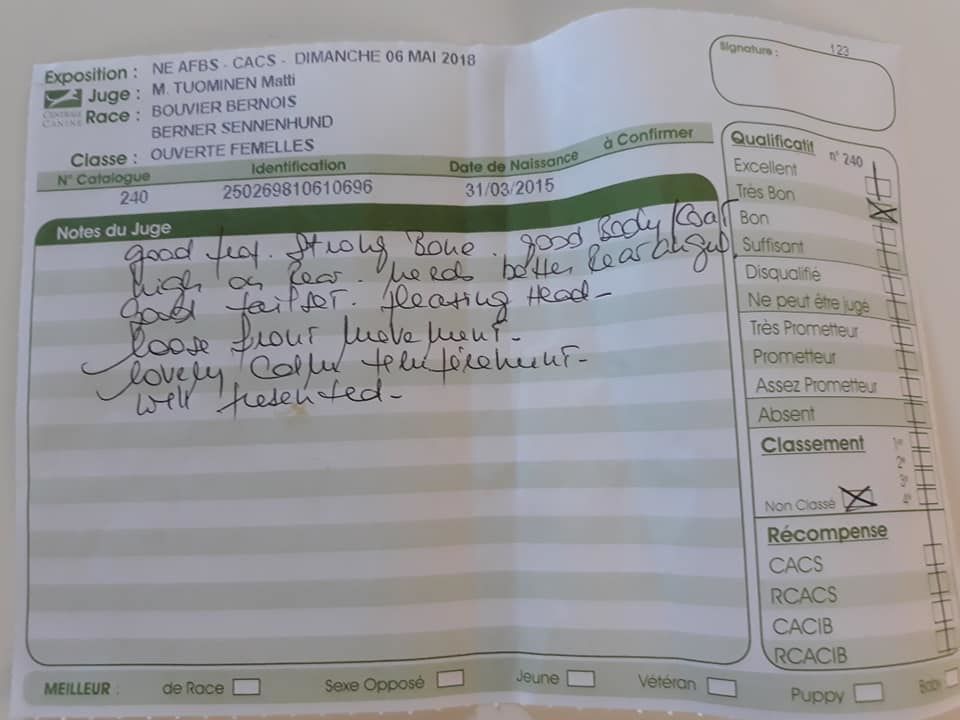 Signature : 123
Exposition : NE AFBS - CACS - DIMANCHE 06 MAI 2018
Juge : M. TUOMINEN Matti
CENTRALE CANINE
Race : BOUVIER BERNOIS
BERNER SENNENHUND
Classe : OUVERTE FEMELLES
N° Catalogue Identification Date de Naissance à Confirmer
240 250269810610696 31/03/2015
Notes du Juge
good feet. Strong Bone. good Body Coat
high on Rear. needs better Rear angul.
Good tailset. pleasing Head -
loose front movement -
lovely Calm temperement -
well presented -
Qualificatif n° 240
Excellent
Très Bon
Bon
Suffisant
Disqualifié
Ne peut être jugé
Très Prometteur
Prometteur
Assez Prometteur
Absent
Classement
1er
2e
3e
4e
Non Classé
Récompense
CACS
RCACS
CACIB
RCACIB
MEILLEUR : de Race Sexe Opposé Jeune Vétéran Puppy Baby